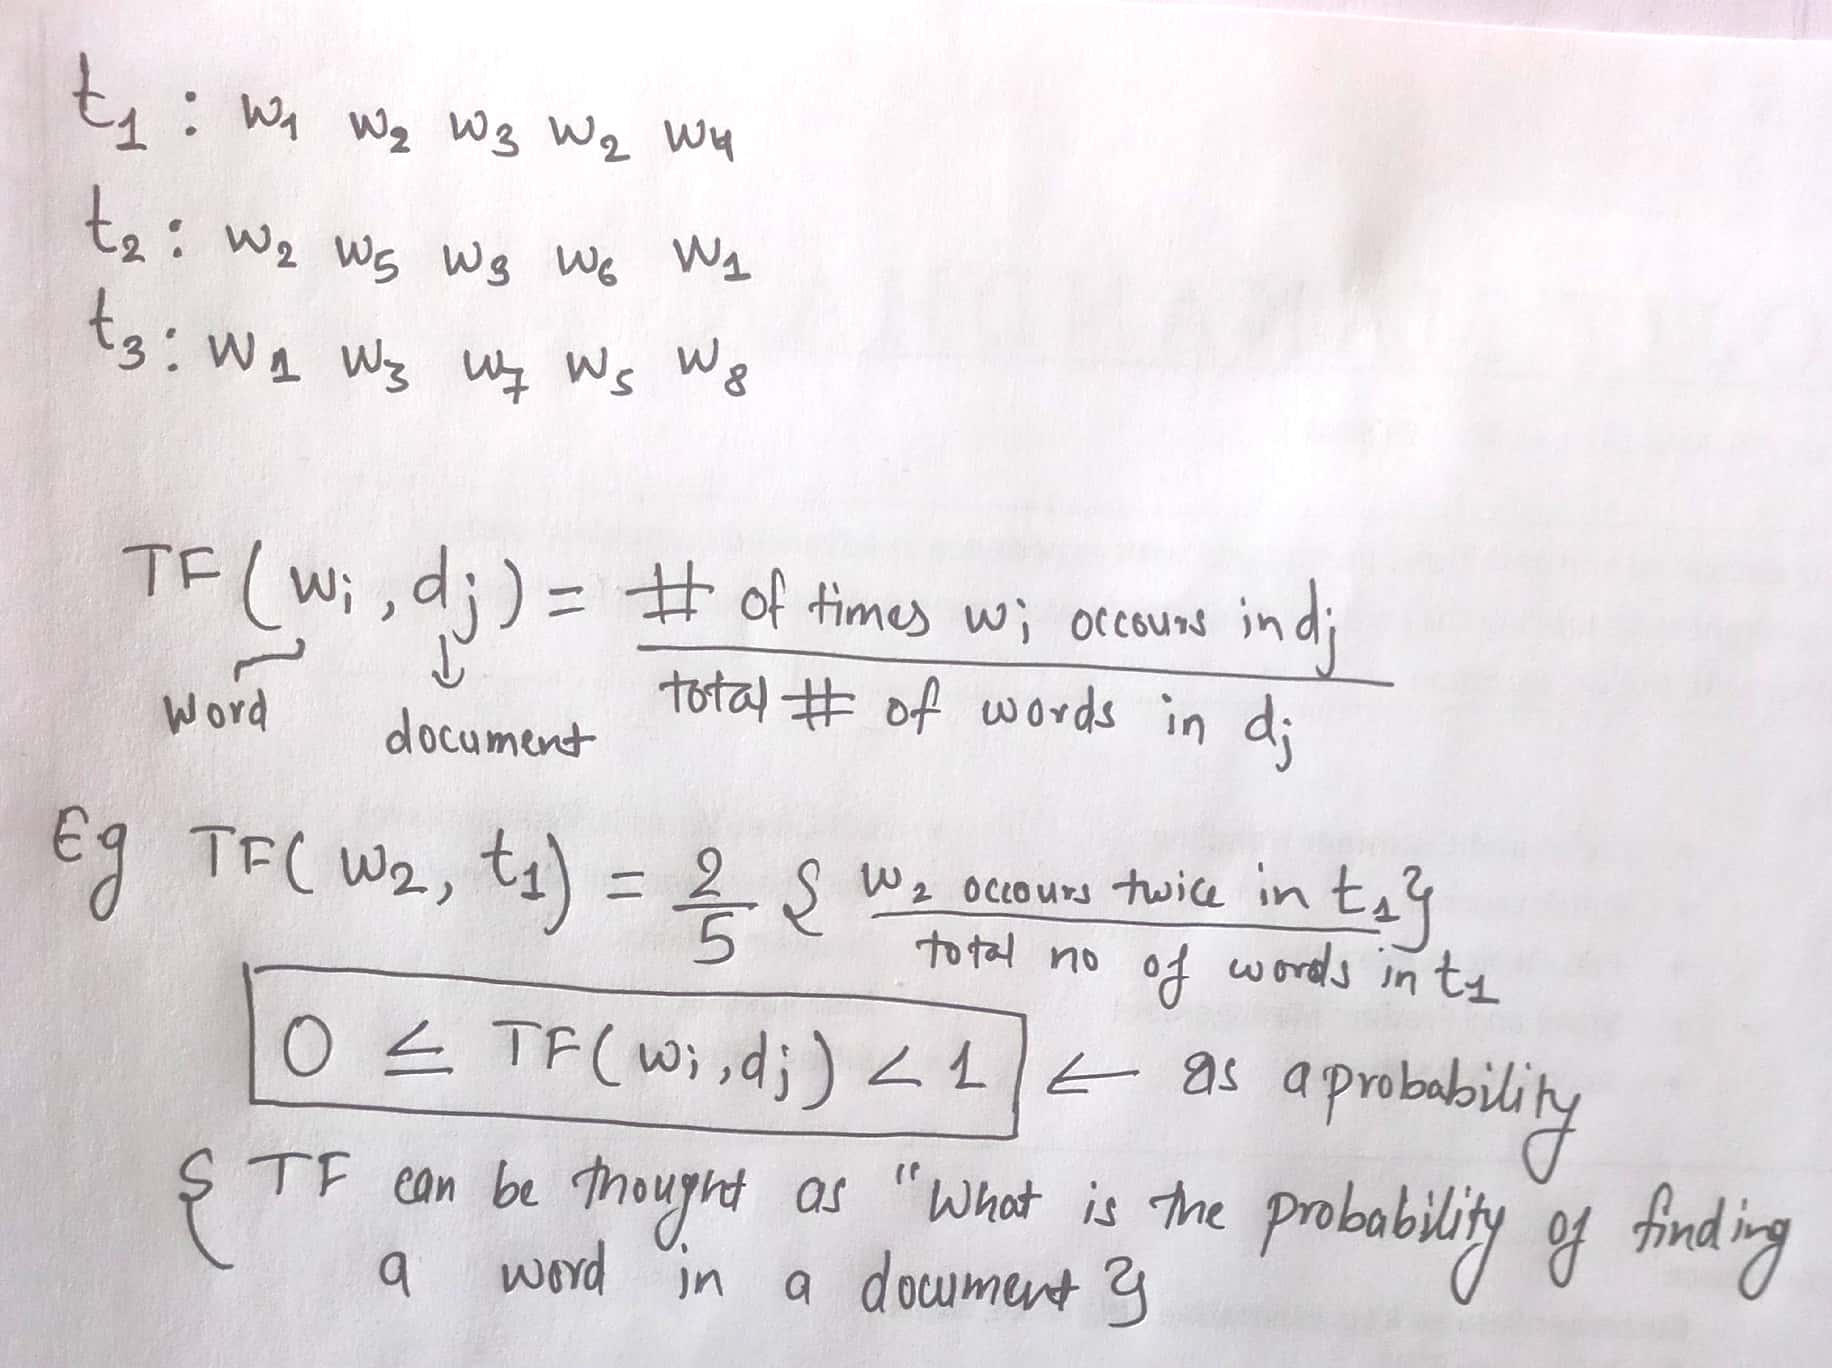 t1 : w1 w2 w3 w2 w4
t2 : w2 w5 w3 w6 w1
t3 : w1 w3 w7 w5 w8
TF ( wi , dj ) = # of times wi occours in dj
total # of words in dj
word
document
Eg TF( w2, t1) = 2/5 { w2 occours twice in t1}
total no of words in t1
0 ≤ TF( wi ,dj ) < 1 ← as a probability
{ TF can be thought as "What is the probability of finding
a word in a document }